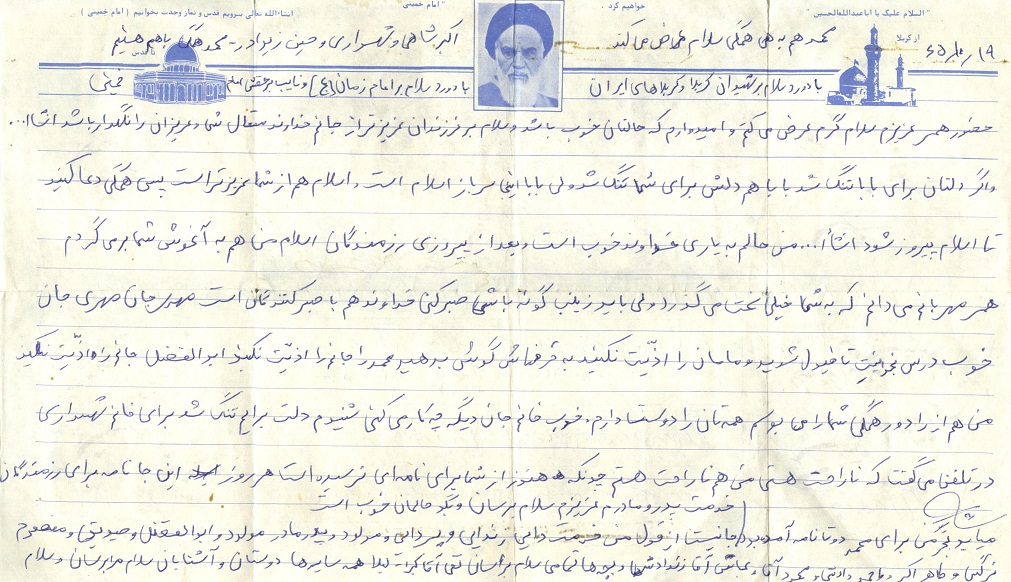 "السلام علیک یا اباعبدالله الحسین"
خواهیم کرد.
"امام خمینی"
انشاءالله تعالی برویم قدس و نماز وحدت بخوانیم (امام خمینی)
از کربلا
تا قدس
محمد هم به همگی سلام عرض می‌کند
اکبر شاهی و شهسواری و حسین زیرادر - محمد همگی باهم هستیم
با درود سلام بر شهیدان کربلا و کربلاهای ایران
با درود سلام بر امام زمان (عج) و نایب بر حقش امام
خمینی
حضور همسر عزیزم سلام گرم عرض می‌کنم و امیدوارم که حالتان خوب باشد و سلام بر فرزندان عزیزتر از جانم خداوند متعال شما عزیزان را نگهدار باشد انشاا...
و اگر دلتان برای بابا تنگ شد بابا هم دلش برای شما تنگ شد ولی بابا اینجا سرباز اسلام است و اسلام هم از شما عزیزتر است پس همگی دعا کنید
تا اسلام پیروز شود انشاا... من حالم به یاری خداوند خوب است و بعد از پیروزی رزمندگان اسلام من هم به آغوش شما بر می‌گردم
همسر مهربانم می‌دانم که به شما خیلی سخت می‌گذرد ولی باید زینب گونه باشی صبر کن خداوند هم با صبر کنندگان است مهدی جان مهری جان
خوب درس بخوانید تا قبول شوید و مامان را اذیت نکنید به حرفهایش گوش بدهید محمد را جانم را اذیت نکنید ابوالفضل جانم را اذیت نکنید
من هم از راه دور همگی شما را می بوسم همه‌تان را دوست دارم، خوب خانم جان دیگر چه کار می‌کنی شنیدم دلت برایم تنگ شد برای خانم شهسواری
در تلفن می‌گفت که ناراحت هستی من هم ناراحت هستم چونکه هنوز از شما برای نامه‌ای نرسیده است هر روز این جا نامه برای رزمندگان
خدمت پدر و مادرم عزیزم سلام برسان و بگو حالمان خوب است
میاید مگر من برای محمد دو تا نامه آمده بود از قول من خدمت دایی و پدر مادر مولود و ابوالفضل و صدیق و معصوم
و طاهر اکبر محمود آقا و عباس آقا و بچه‌ها تمامی سلام برسان تقی آقا لیلا همه سایرها دوستان و آشنایان سلام ما برسان والسلام